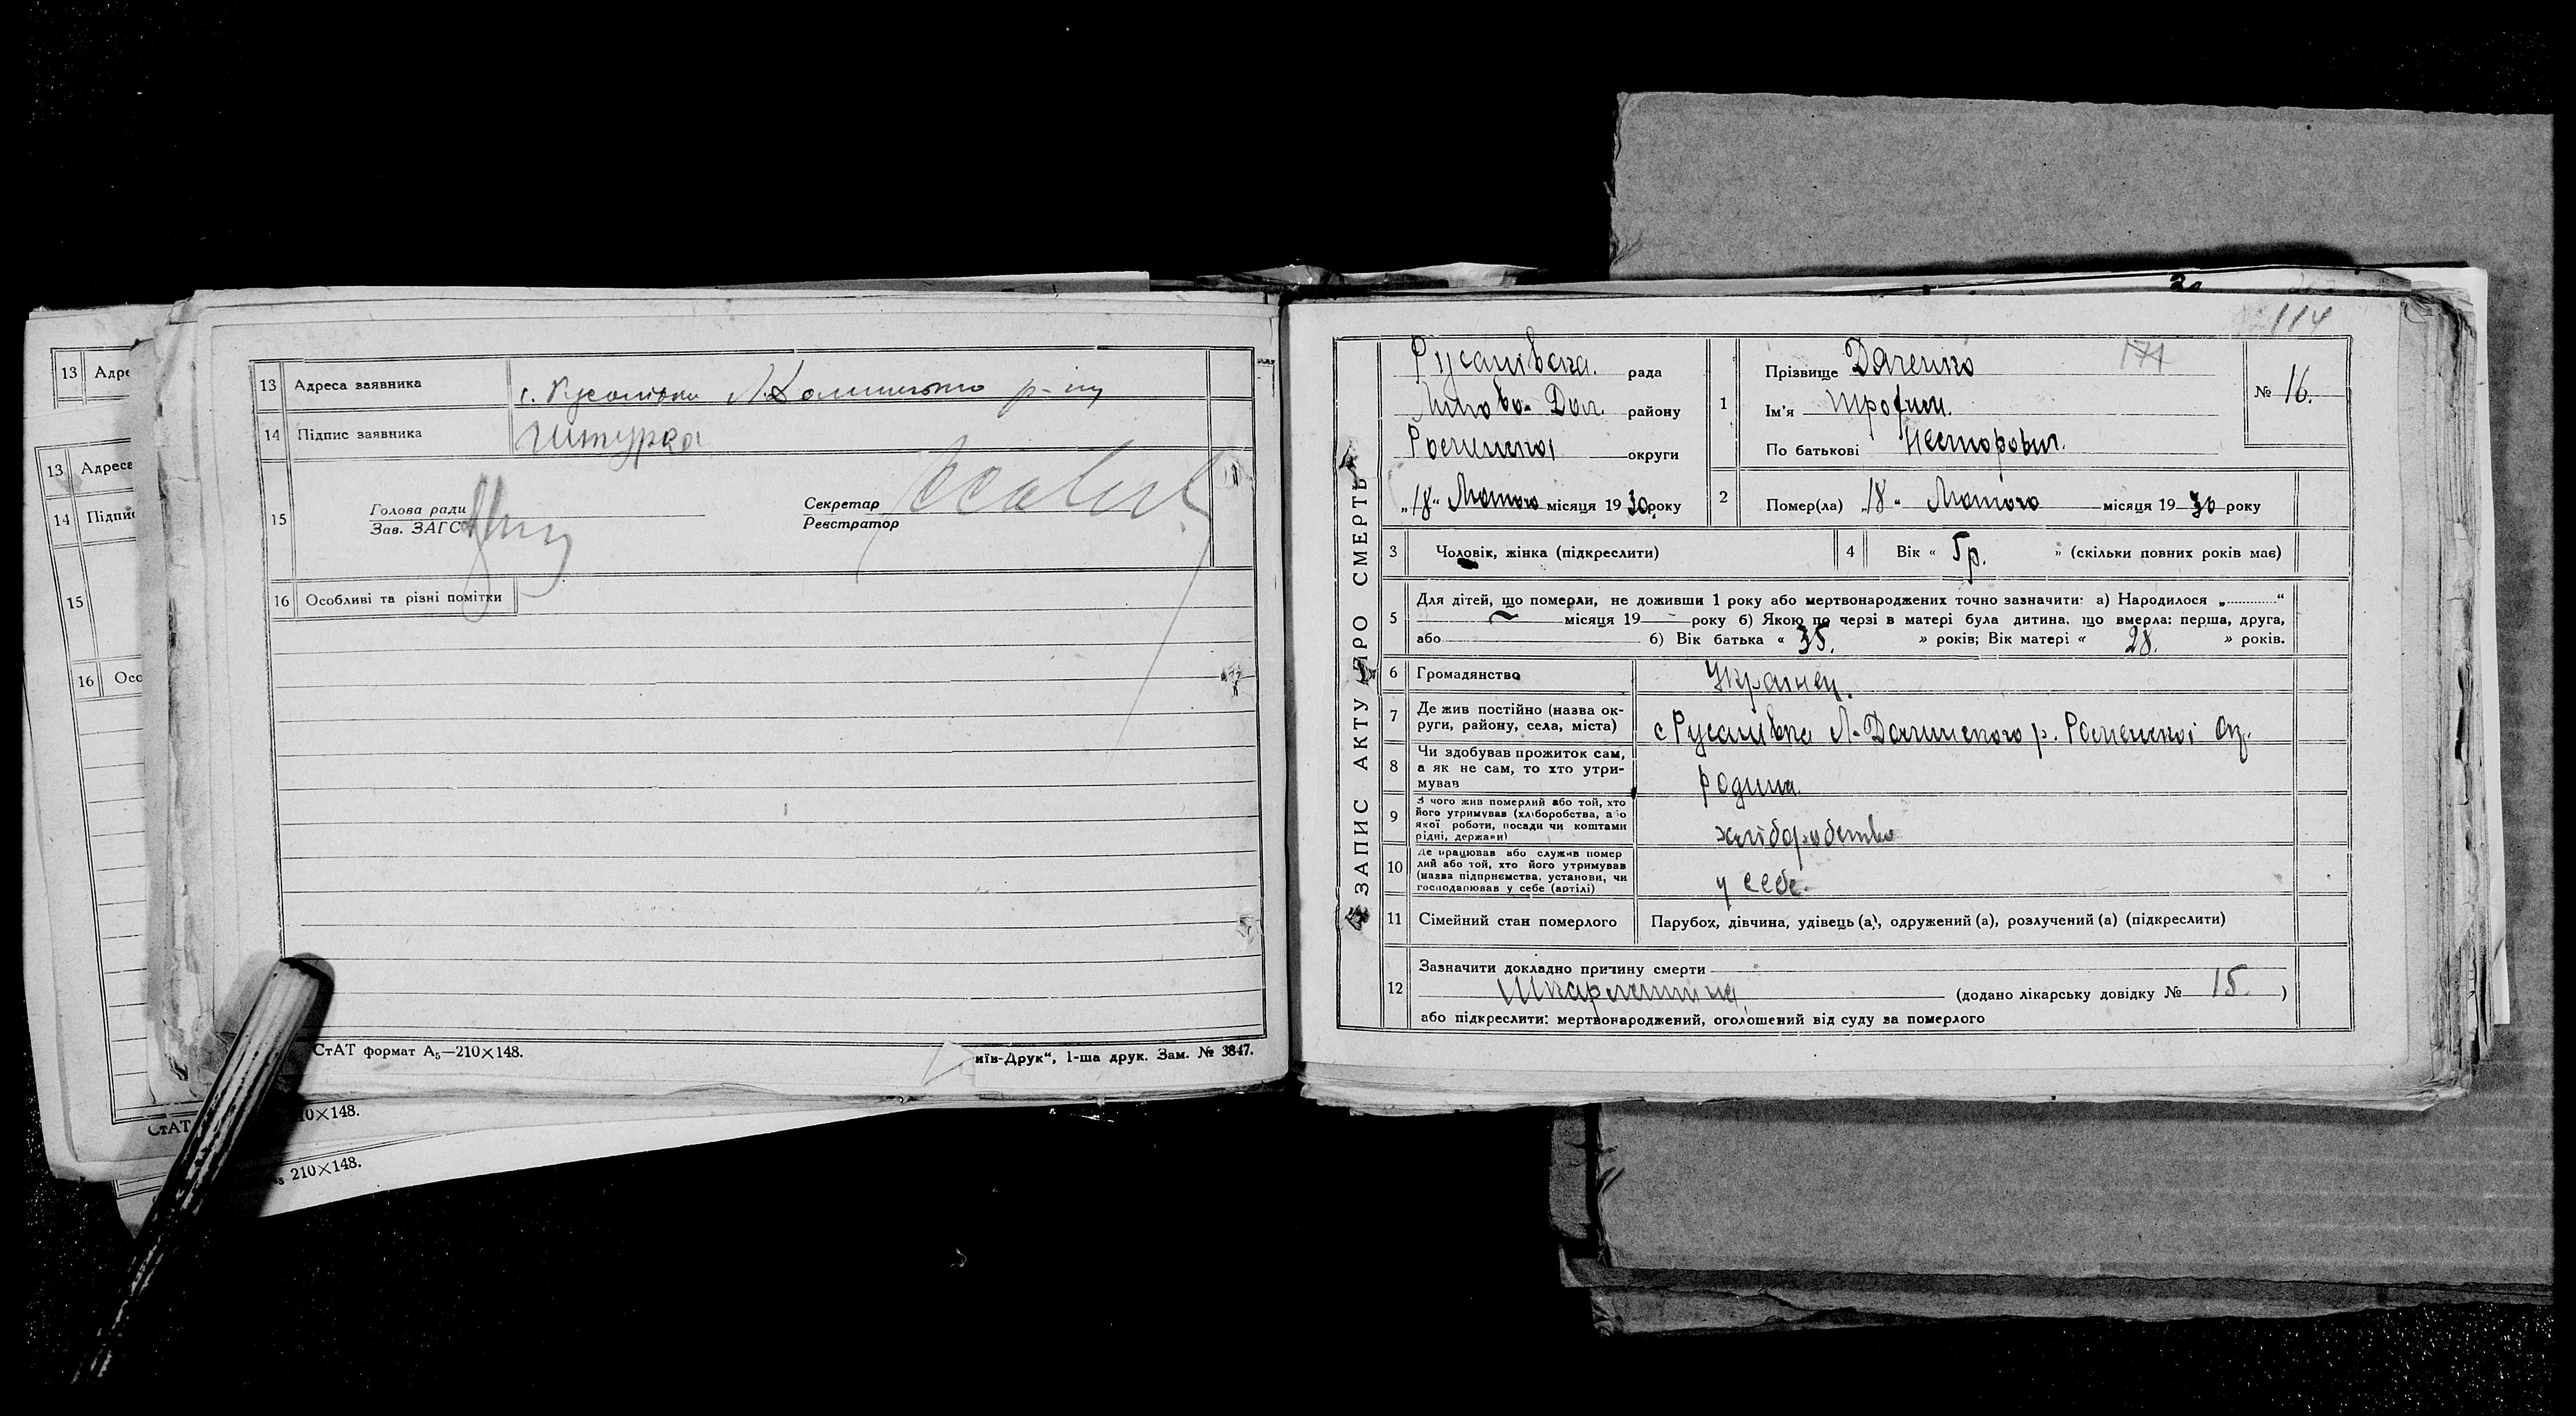 13 Адре
13 Адреса
14 Підпис
15
15
16 Осо
13 Адреса заявника с. Русанівки Л. Долинського р-ну
14 Підпис заявника
15 Голова ради
Зав. ЗАГС
Секретар
Реєстратор
16 Особливі та різні помітки
СтАТ формат А₅—210×148.
иїв-Друк“, 1-ша друк. Зам. № 3847.
СтАТ 10×148.
210×148.
114
171
ЗАПИС АКТУ ПРО СМЕРТЬ
Русанівська рада
Липово-Дол. району
Роменської округи
„18“ Лютого місяця 1930 року
1 Прізвище Дяченко
Ім'я Трофим.
По батькові Несторович.
№ 16.
2 Помер(ла) „18“ Лютого місяця 1930 року
3 Чоловік, жінка (підкреслити)
4 Вік « 5 р. » (скільки повних років має)
5 Для дітей, що померли, не доживши 1 року або мертвонароджених точно зазначити: а) Народилося „ “
місяця 19 року б) Якою по черзі в матері була дитина, що вмерла: перша, друга,
або б) Вік батька « 35. » років; Вік матері « 28. » років.
6 Громадянство Українец.
7 Де жив постійно (назва ок-
руги, району, села, міста) с Русанівка Л-Долинського р. Роменської Окр.
8 Чи здобував прожиток сам,
а як не сам, то хто утри-
мував родина
9 З чого жив померлий або той, хто
його утримував (хліборобства, або
якої роботи, посади чи коштами
рідні, держави) хліборобство
10 Де працював або служив помер
лий або той, хто його утримував
(назва підприємства, установи, чи
господарював у себе (артілі) у себе.
11 Сімейний стан померлого Парубох, дівчина, удівець (а), одружений (а), розлучений (а) (підкреслити)
12 Зазначити докладно причину смерти
Шкарлятина (додано лікарську довідку № 15. )
або підкреслити: мертвонароджений, оголошений від суду за померлого